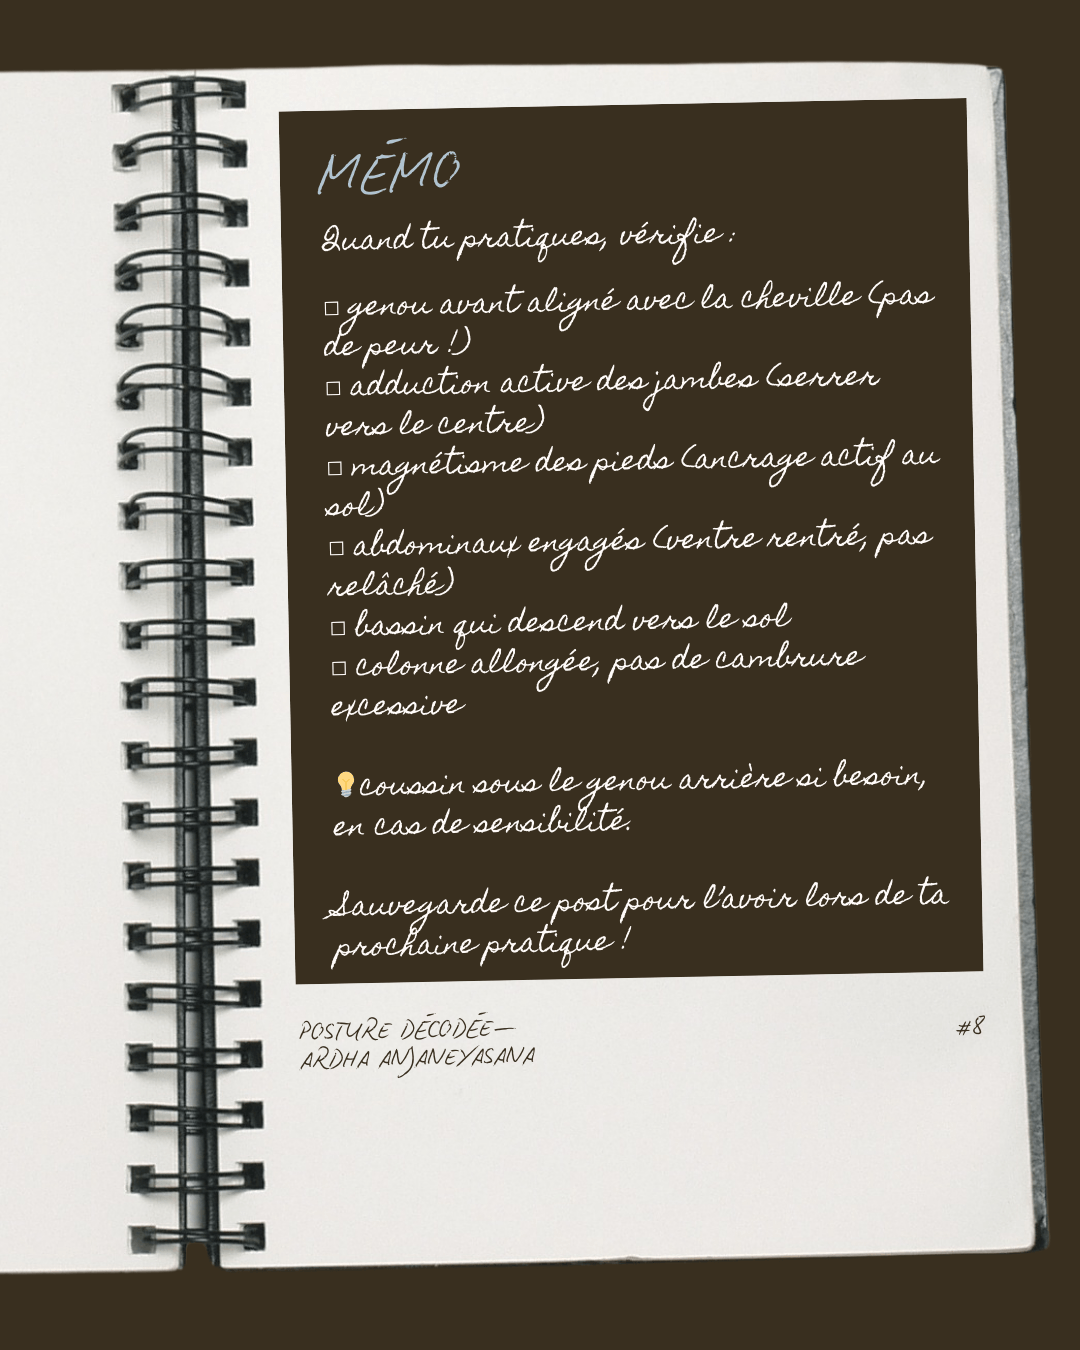 MÉMO
Quand tu pratiques, vérifie :
☐ genou avant aligné avec la cheville (pas
de peur !)
☐ adduction active des jambes (serrer
vers le centre)
☐ magnétisme des pieds (ancrage actif au
sol)
☐ abdominaux engagés (ventre rentré, pas
relâché)
☐ bassin qui descend vers le sol
☐ colonne allongée, pas de cambrure
excessive
💡coussin sous le genou arrière si besoin,
en cas de sensibilité.
Sauvegarde ce post pour l'avoir lors de ta
prochaine pratique !
POSTURE DÉCODÉE—
ARDHA ANJANEYASANA
#8